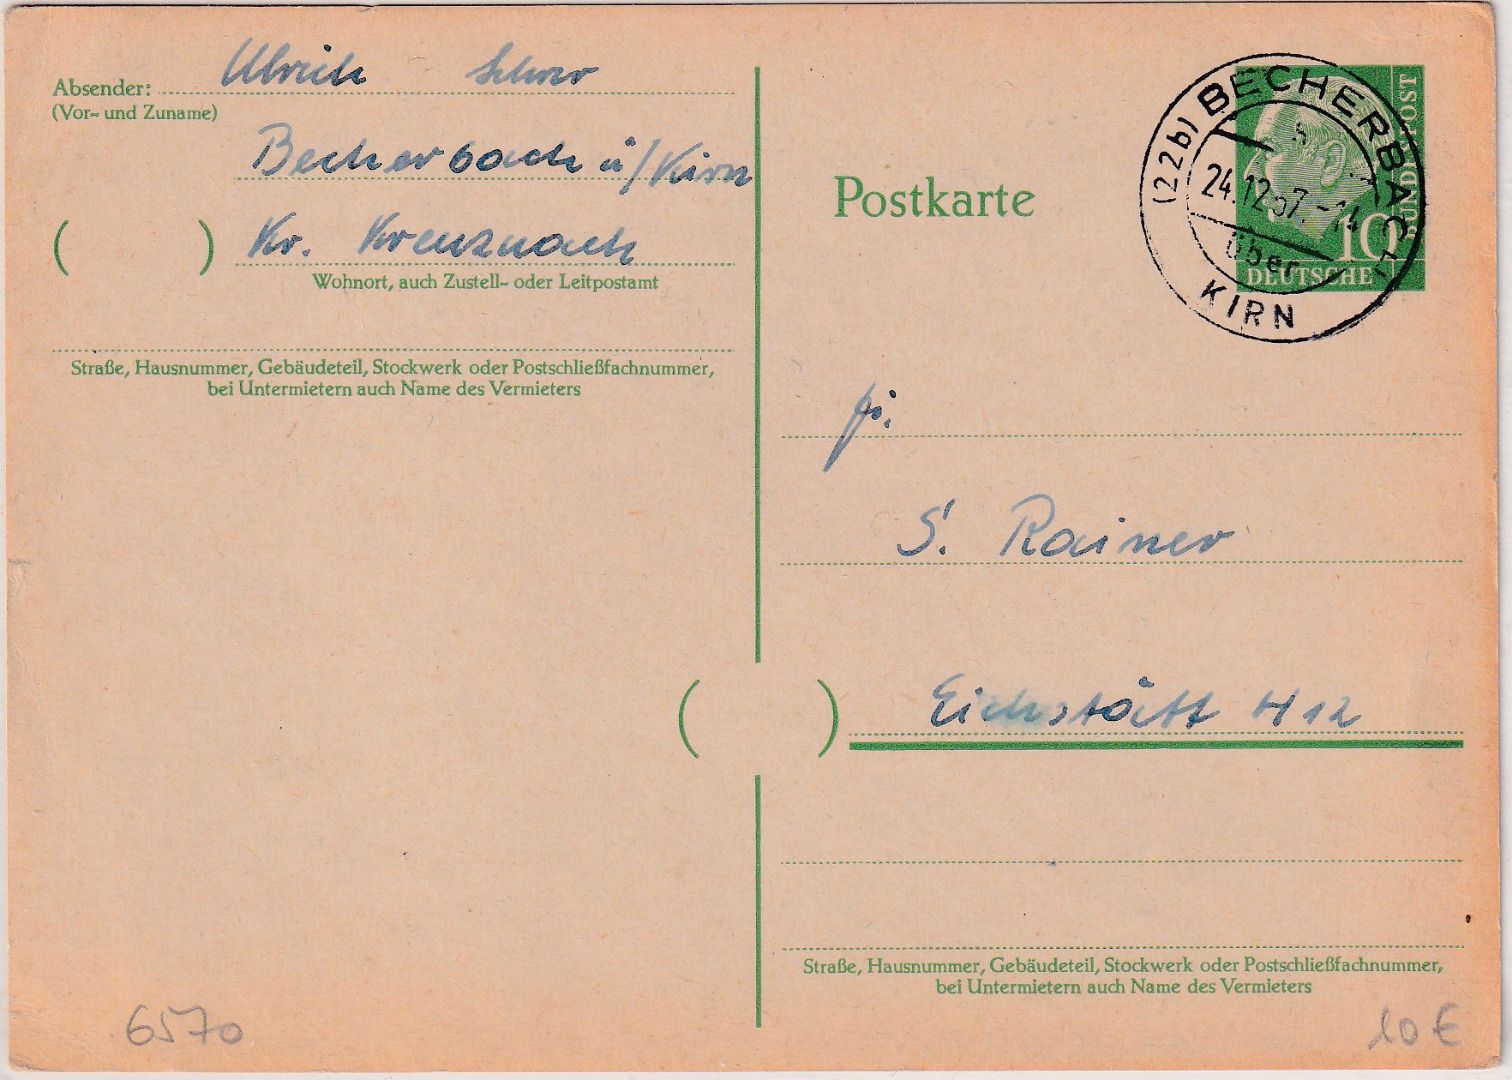 Absender: Ulrich
(Vor- und Zuname)
Becherbach ü/Kirn
( ) Kr. Kreuznach
Wohnort, auch Zustell- oder Leitpostamt
Straße, Hausnummer, Gebäudeteil, Stockwerk oder Postschließfachnummer,
bei Untermietern auch Name des Vermieters
Postkarte
(22b) BECHERBACH
24.12.57.-14
über
KIRN
DEUTSCHE
BUNDESPOST
10
S. Rainer
( ) Eichstätt H 12
Straße, Hausnummer, Gebäudeteil, Stockwerk oder Postschließfachnummer,
bei Untermietern auch Name des Vermieters
6570
10 €